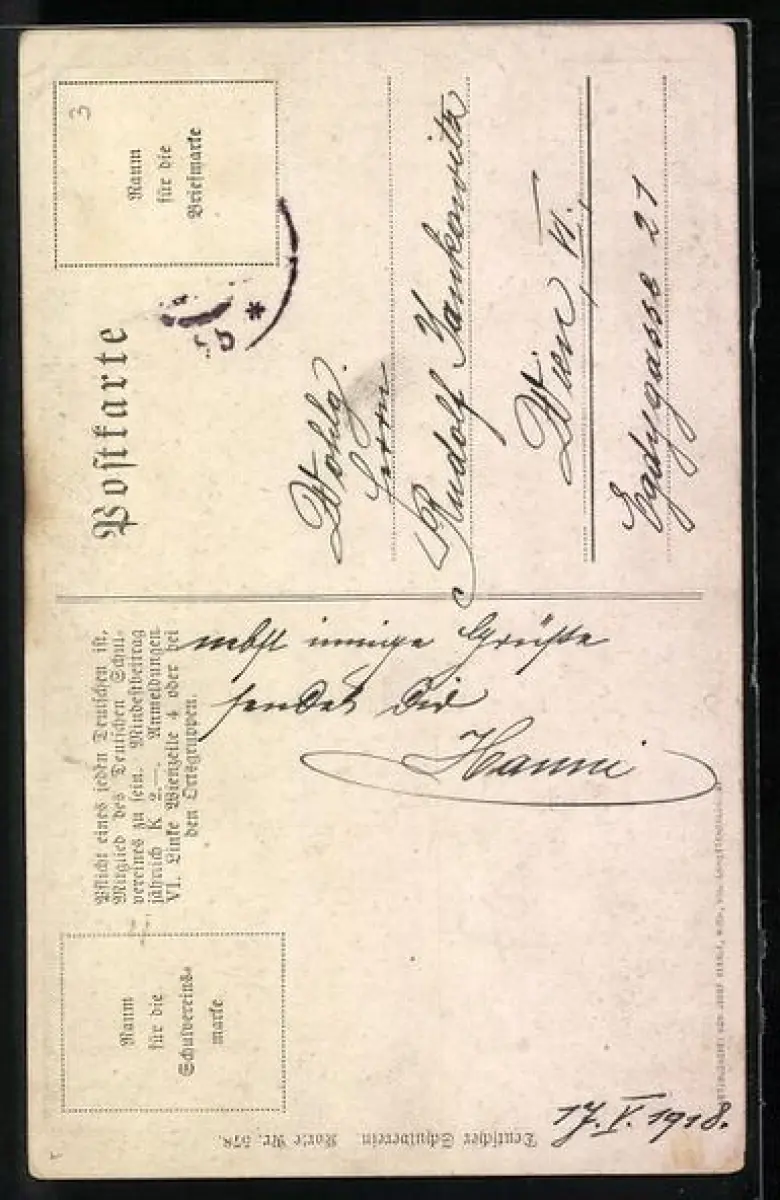 Raum
für die
Schulvereins-
marke
Pflicht eines jeden Deutschen ist,
Mitglied des Deutschen Schul-
vereines zu sein. Mindestbeitrag
jährlich K 2.—. Anmeldungen
VI. Linke Wienzeile 4 oder bei
den Ortsgruppen.
nebst innige Grüße
sendet Dir
Hanni
17. V. 1918.
Deutscher Schulverein Karte Nr. 578.
Postkarte
Raum
für die
Briefmarke
3
Wohlg.
Herrn
Rudolf Jankowitz
Wien, VI.
Egidygasse 21